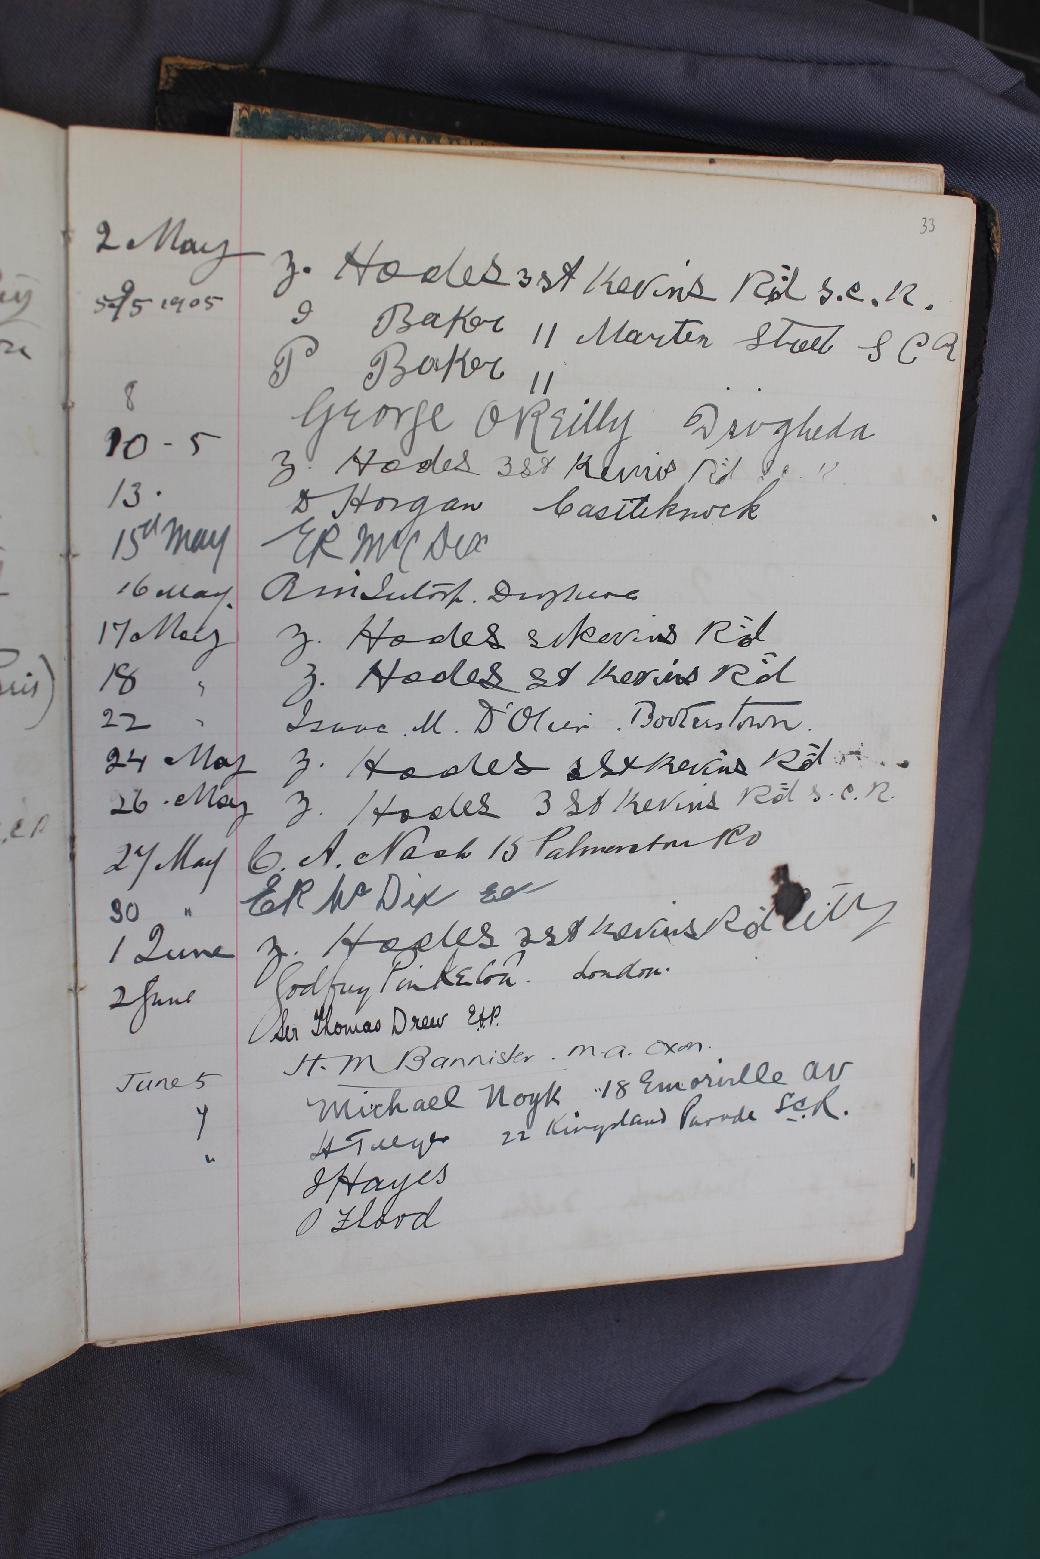 33
2 May Z. Hodes 3 St Kevins Rd S.C.R.
5/5 1905 I Baker 11 Marten Street S C R
P Baker 11
8 George O'Reilly Drogheda
10-5 Z. Hodes 3 St Kevins Rd
13. D Horgan Castleknock
15th May ER McC Dix
16 May. Drogheda
17 May Z. Hodes St Kevins Rd
18 " Z. Hodes St Kevins Rd
22 " Isaac M. D'Olier Booterstown.
24 May Z. Hodes 3 St Kevins Rd
26 May Z. Hodes 3 St Kevins Rd S.C.R.
27 May C. A. Nash 15 Palmerston Rd
30 " ER McC Dix
1 June Z. Hodes 3 St Kevins Rd City
2 June Godfrey Pinkerton. London.
Sir Thomas Drew
H. M Bannister. M.A. Oxon.
June 5 Michael Noyk 18 Emorville Av
" H 22 Kingsland Parade S.C.R.
" J Hayes
O Flood